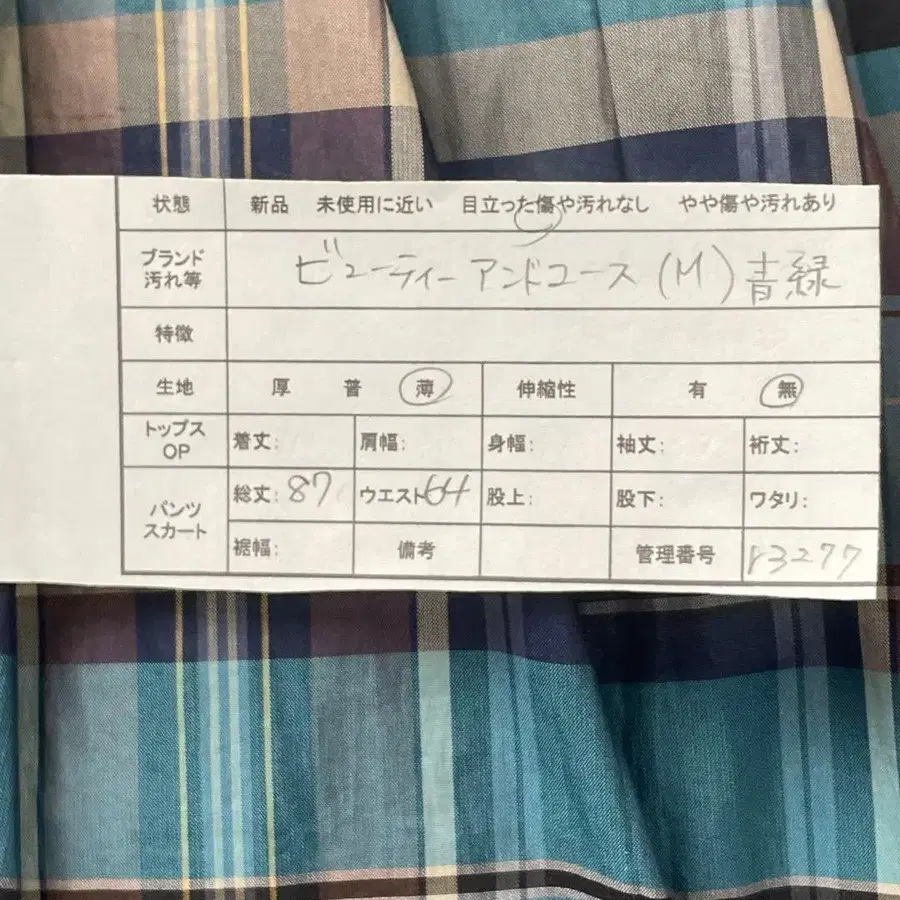 状態 新品 未使用に近い 目立った傷や汚れなし やや傷や汚れあり
ブランド
汚れ等
ビューティーアンドユース (M) 青緑
特徴
生地 厚 普 薄 伸縮性 有 無
トップス
OP
着丈: 肩幅: 身幅: 袖丈: 裄丈:
パンツ
スカート
総丈: 87 ウエスト 64 股上: 股下: ワタリ:
裾幅: 備考 管理番号 r3277